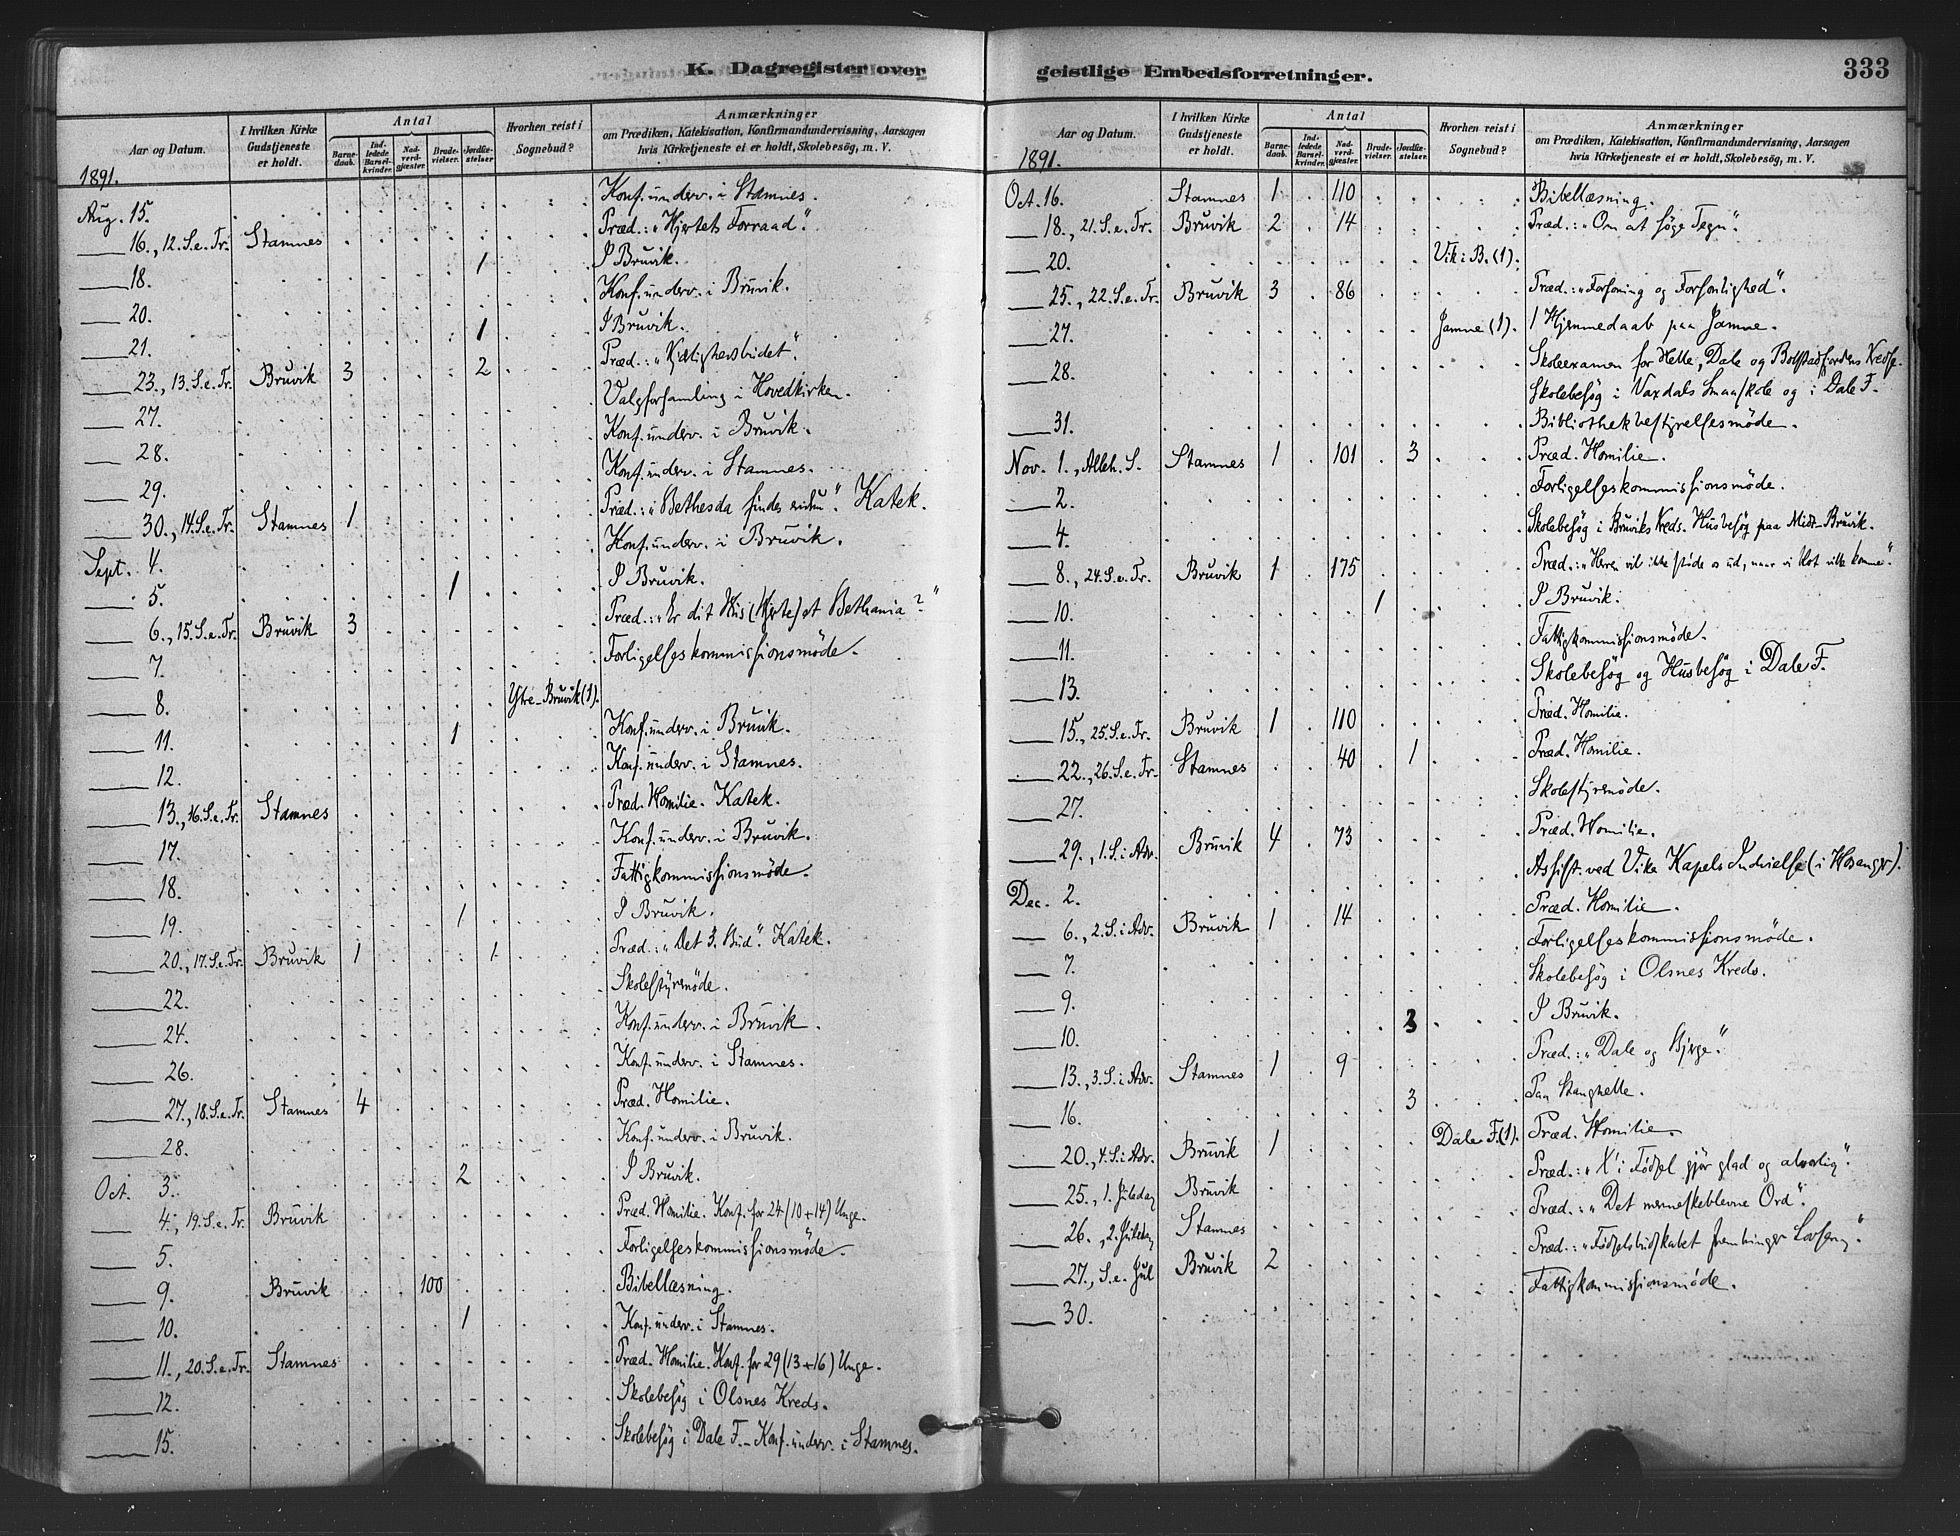 K. Dagregister over
Aar og Datum.
I hvilken Kirke Gudstjeneste er holdt.
Antal
Barnedaab.
Indledede Barselkvinder.
Nadverdgjæster.
Brudevielser.
Jordfæstelser
Hvorhen reist i Sognebud?
Anmærkninger om Prædiken, Katekisation, Konfirmandundervisning, Aarsagen hvis Kirketjeneste ei er holdt, Skolebesøg, m. V.
1891.
Aug. 15. Konf. underv. i Stamnes.
16., 12. S. e. Tr. Stamnes Præd.: „Hjertets Forraad."
18. 1 I Bruvik.
20. Konf. underv. i Bruvik.
21. 1 I Bruvik.
23., 13. S. e. Tr. Bruvik 3 2 Præd.: „Kjærlighedsbudet".
27. Valgforsamling i Hovedkirken.
28. Konf. underv. i Bruvik.
29. Konf. underv. i Stamnes.
30., 14. S. e. Tr. Stamnes 1 Præd.: „Bethesda findes endnu". Katek.
Sept. 4. Konf. underv. i Bruvik.
5. 1 I Bruvik.
6., 15. S. e. Tr. Bruvik 3 Præd.: „Er dit Hus (Hjerte) et Bethania?"
7. Forligelseskommissionsmøde.
8. Ytre-Bruvik (1).
11. 1 Konf. underv. i Bruvik.
12. Konf. underv. i Stamnes.
13., 16. S. e. Tr. Stamnes Præd. Homilie. Katek.
17. Konf. underv. i Bruvik.
18. Fattigkommissionsmøde.
19. 1 I Bruvik.
20., 17. S. e. Tr. Bruvik 1 1 Præd.: „Det 3. Bud". Katek.
22. Skolestyremøde.
24. Konf. underv. i Bruvik.
26. Konf. underv. i Stamnes.
27., 18. S. e. Tr. Stamnes 4 Præd. Homilie.
28. Konf. underv. i Bruvik.
Oct. 3. 2 I Bruvik.
4., 19. S. e. Tr. Bruvik Præd. Homilie. Konf. for 24 (10 + 14) Unge.
5. Forligelseskommissionsmøde.
9. Bruvik 100 Bibellæsning.
10. 1 Konf. underv. i Stamnes.
11., 20. S. e. Tr. Stamnes Præd. Homilie. Konf. for 29 (13 + 16) Unge.
12. Skolebesøg i Olsnes Kreds.
15. Skolebesøg i Dale F. – Konf. underv. i Stamnes.
geistlige Embedsforretninger.
333
Aar og Datum.
I hvilken Kirke Gudstjeneste er holdt.
Antal
Barnedaab.
Indledede Barselkvinder.
Nadverdgjæster.
Brudevielser.
Jordfæstelser
Hvorhen reist i Sognebud?
Anmærkninger om Prædiken, Katekisation, Konfirmandundervisning, Aarsagen hvis Kirketjeneste ei er holdt, Skolebesøg, m. V.
1891.
Oct. 16. Stamnes 1 110 Bibellæsning.
18., 21. S. e. Tr. Bruvik 2 14 Præd.: „Om at søge Tegn".
20. Vik i B. (1).
25., 22. S. e. Tr. Bruvik 3 86 Præd.: „Forsoning og Forsonlighed".
27. Jamne (1). 1 Hjemmedaab paa Jamne.
28. Skoleexamen for Helle, Dale og Bolstadfjordens Kredse.
Skolebesøg i Vaxdals Smaaskole og i Dale F.
31. Bibliothekbestyrelsesmøde.
Nov. 1., Alleh. S. Stamnes 1 101 3 Præd. Homilie.
2. Forligelseskommissionsmøde.
4. Skolebesøg i Bruviks Kreds. Husbesøg paa Midt-Bruvik.
8., 24. S. e. Tr. Bruvik 1 175 Præd.: „Herren vil ikke støde os ud, naar vi blot ville komme".
10. 1 I Bruvik.
11. Fattigkommissionsmøde.
13. Skolebesøg og Husbesøg i Dale F.
15., 25. S. e. Tr. Bruvik 1 110 Præd. Homilie.
22., 26. S. e. Tr. Stamnes 40 1 Præd. Homilie.
27. Skolestyremøde.
29., 1. S. i Adv. Bruvik 4 73 Præd. Homilie.
Dec. 2. Assist. ved Vike Kapels Indvielse (i Hosanger).
6., 2. S. i Adv. Bruvik 1 14 Præd. Homilie.
7. Forligelseskommissionsmøde.
9. Skolebesøg i Olsnes Kreds.
10. I Bruvik.
13., 3. S. i Adv. Stamnes 1 9 Præd.: „Dale og Bjerge".
16. 3 Paa Stanghelle.
20., 4. S. i Adv. Bruvik 1 Dale F. (1). Præd. Homilie.
25., 1. Juledag Bruvik Præd.: „X's Fødsel gjør glad og alvorlig".
26., 2. Juledag Stamnes Præd.: „Det menneskeblevne Ord".
27., S. e. Jul Bruvik 2 Præd.: „Fødselsbudskabet frembringer Lovsang".
30. Fattigkommissionsmøde.